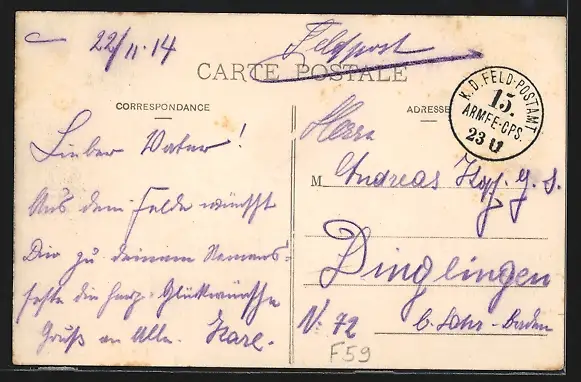 22/11.14
Feldpost
CARTE POSTALE
CORRESPONDANCE
ADRESSE
K.D. FELD-POSTAMT
15.
ARMEE-CPS.
23 11
Lieber Vater!
Aus dem Felde wünscht
Dir zu deinem Namens-
feste die herz. Glückwünsche
Gruß an Alle. Karl.
Herrn
M Andreas
Dinglingen
N: 72 b. Lahr-Baden
F59